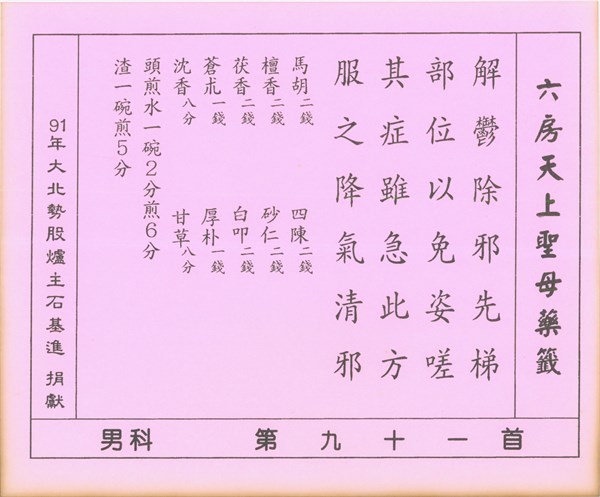 六房天上聖母藥籤
解鬱除邪先梯
部位以免姿嗟
其症雖急此方
服之降氣清邪
馬胡二錢 四陳二錢
檀香二錢 砂仁二錢
茯香二錢 白叩二錢
蒼朮一錢 厚朴一錢
沈香八分 甘草八分
頭煎水一碗2分煎6分
渣一碗煎5分
91年大北勢股爐主石基進 捐獻
首一十九第 男科